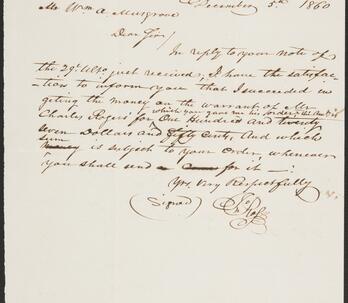 December 5th 1860
Mr Wm A. Musgrove
Dear Sir!
In reply to your note of
the 29th Ulto, just received, I have the satisfac-
tion to inform you that I succeeded in
geting the money on the warrant of Mr
which you gave me his order for the Amt of
Charles Rogers for One Hundred and twenty
seven Dollars and fifty cents, And which
sum
is subject to your order whenever
you shall send for it —
Yrs. Very Respectfully
(Signed)